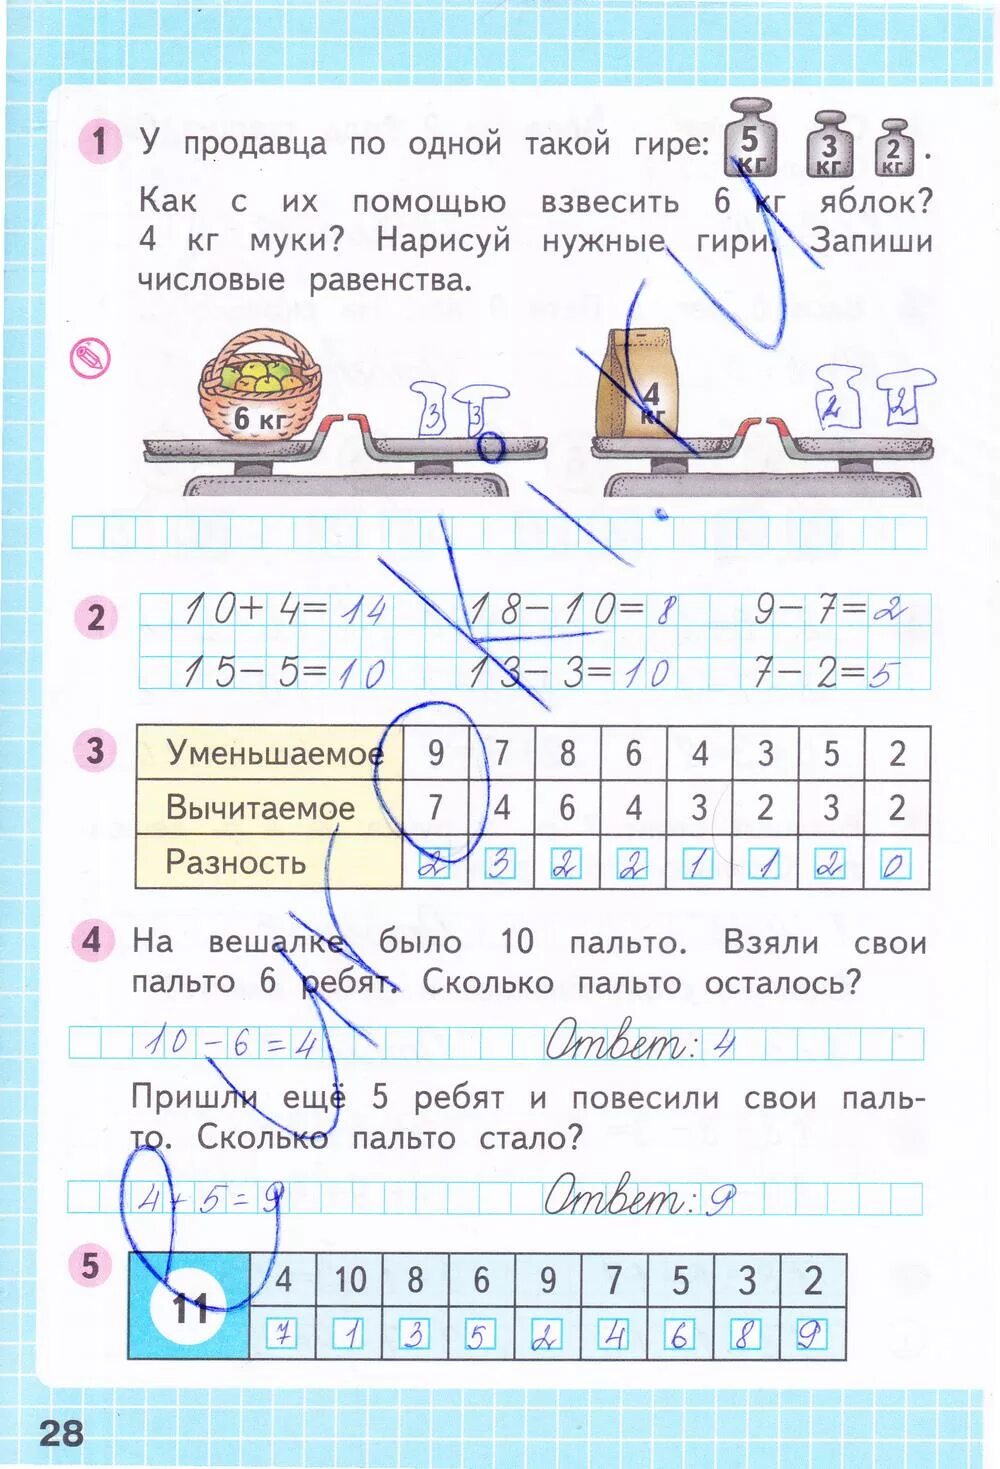 1 У продавца по одной такой гире: 5 кг 3 кг 2 кг .
Как с их помощью взвесить 6 кг яблок?
4 кг муки? Нарисуй нужные гири. Запиши
числовые равенства.
6 кг 3 3 4 кг 2 2
2 10+4=14 18-10=8 9-7=2
15-5=10 13-3=10 7-2=5
3 Уменьшаемое 9 7 8 6 4 3 5 2
Вычитаемое 7 4 6 4 3 2 3 2
Разность 2 3 2 2 1 1 2 0
4 На вешалке было 10 пальто. Взяли свои
пальто 6 ребят. Сколько пальто осталось?
10-6=4 Ответ: 4
Пришли ещё 5 ребят и повесили свои паль-
то. Сколько пальто стало?
4+5=9 Ответ: 9
5 11 4 10 8 6 9 7 5 3 2
7 1 3 5 2 4 6 8 9
28